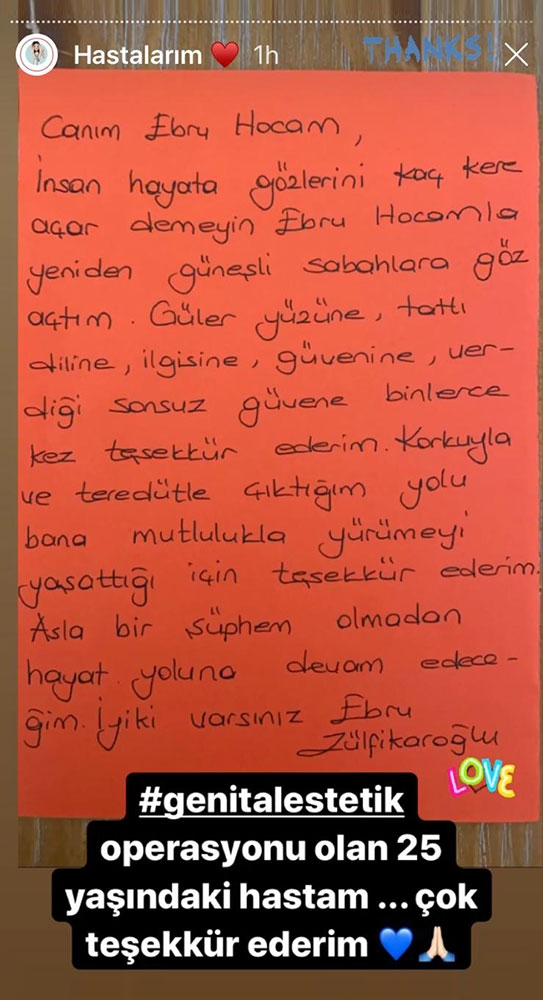 Hastalarım ❤️ 1h
THANKS!
Canım Ebru Hocam,
İnsan hayata gözlerini kaç kere
açar demeyin Ebru Hocamla
yeniden güneşli sabahlara göz
açtım. Güler yüzüne, tatlı
diline, ilgisine, güvenine, ver-
diği sonsuz güvene binlerce
kez teşekkür ederim. Korkuyla
ve teredütle çıktığım yolu
bana mutlulukla yürümeyi
yaşattığı için teşekkür ederim.
Asla bir şüphem olmadan
hayat yoluna devam edece-
ğim. İyiki varsınız Ebru
Zülfikaroğlu
LOVE
#genitalestetik
operasyonu olan 25
yaşındaki hastam ... çok
teşekkür ederim 💙🙏🏻